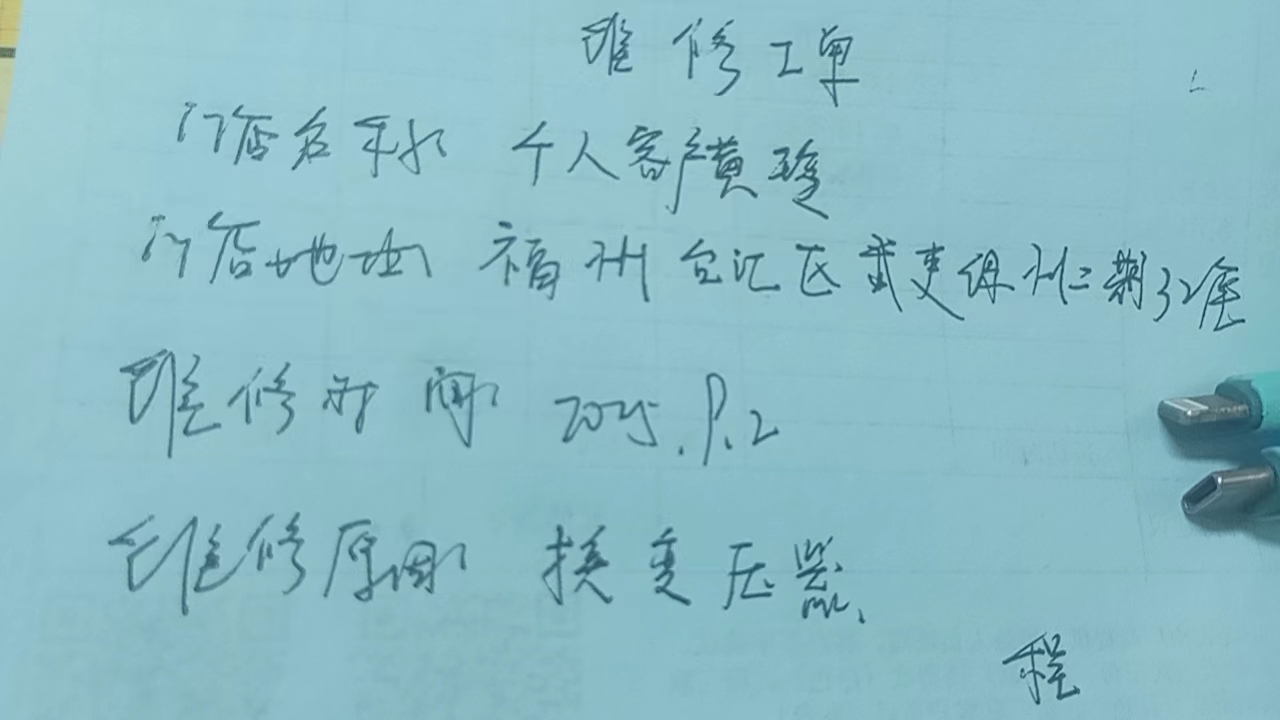 维修工单
门店名称 个人客户黄
门店地址 福州台江区 二期32座
维修时间 2025.9.2
维修原因 换变压器.
程